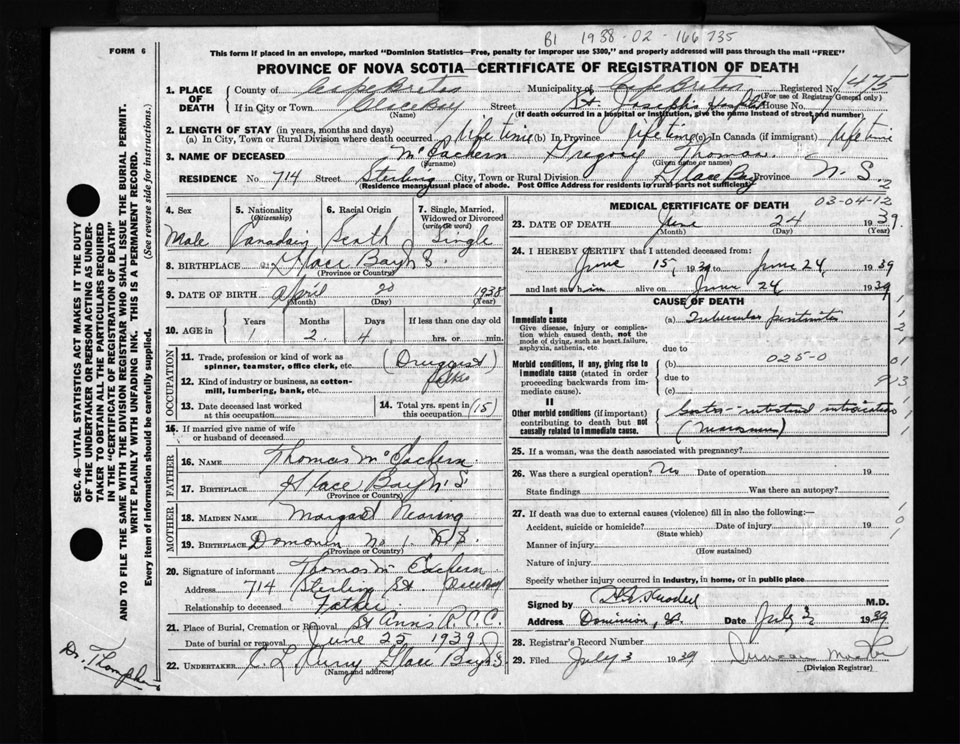 B1 1938-02-166735
FORM 6
This form if placed in an envelope, marked "Dominion Statistics—Free, penalty for improper use $300," and properly addressed will pass through the mail "FREE"
PROVINCE OF NOVA SCOTIA—CERTIFICATE OF REGISTRATION OF DEATH
1475
1. PLACE OF DEATH
County of Cape Breton Municipality of C. Breton Registered No.
(For use of Registrar General only)
If in City or Town Glace Bay Street St. Joseph's Hospital House No.
(Name) (If death occurred in a hospital or institution, give the name instead of street and number)
2. LENGTH OF STAY (in years, months and days)
(a) In City, Town or Rural Division where death occurred life time (b) In Province life time (c) In Canada (if immigrant) life time
3. NAME OF DECEASED McEachern Gregory Thomas
(Surname) (Given name or names)
RESIDENCE No. 714 Street Sterling City, Town or Rural Division Glace Bay Province N.S.
(Residence means usual place of abode. Post Office Address for residents in rural parts not sufficient)
4. Sex
Male
5. Nationality
(Citizenship)
Canadian
6. Racial Origin
7. Single, Married, Widowed or Divorced
(write the word)
Single
8. BIRTHPLACE Glace Bay N.S.
(Province or Country)
9. DATE OF BIRTH April 20 1938
(Month) (Day) (Year)
10. AGE in
Years Months Days If less than one day old
1 2 4 hrs. or min.
OCCUPATION
11. Trade, profession or kind of work as spinner, teamster, office clerk, etc. (Druggist)
12. Kind of industry or business, as cotton-mill, lumbering, bank, etc. father
13. Date deceased last worked at this occupation
14. Total yrs. spent in this occupation (15)
15. If married give name of wife or husband of deceased
FATHER
16. NAME Thomas McEachern
17. BIRTHPLACE Glace Bay N.S
(Province or Country)
MOTHER
18. MAIDEN NAME Margaret Nearing
19. BIRTHPLACE Dominion No 1. N.S.
(Province or Country)
20. Signature of informant Thomas McEachern
Address 714 Sterling St Glace Bay
Relationship to deceased Father
21. Place of Burial, Cremation or Removal St Anns R.C.C.
Date of burial or removal June 25 1939
22. UNDERTAKER Glace Bay N.S.
(Name and address)
MEDICAL CERTIFICATE OF DEATH
03-04-12
23. DATE OF DEATH June 24 1939
(Month) (Day) (Year)
24. I HEREBY CERTIFY that I attended deceased from:
June 15, 1939 to June 24 1939
and last saw him alive on June 24 1939
CAUSE OF DEATH
I
Immediate cause
Give disease, injury or complication which caused death, not the mode of dying, such as heart failure, asphyxia, asthenia, etc.
(a) Tubercular peritonitis
due to
Morbid conditions, if any, giving rise to immediate cause (stated in order proceeding backwards from immediate cause).
(b) 025-0
due to
(c)
II
Other morbid conditions (if important) contributing to death but not causally related to immediate cause.
Gastro-intestinal intoxication
(Marasmus)
25. If a woman, was the death associated with pregnancy?
26. Was there a surgical operation? No Date of operation 19
State findings Was there an autopsy?
27. If death was due to external causes (violence) fill in also the following:—
Accident, suicide or homicide? Date of injury 19
(State which)
Manner of injury
(How sustained)
Nature of injury
Specify whether injury occurred in industry, in home, or in public place
Signed by M.D.
Address Dominion, Date July 3 1939
28. Registrar's Record Number
29. Filed July 3 1939 Duncan
(Division Registrar)
SEC. 46—VITAL STATISTICS ACT MAKES IT THE DUTY
OF THE UNDERTAKER OR PERSON ACTING AS UNDER-
TAKER TO OBTAIN ALL THE PARTICULARS REQUIRED
IN THE "CERTIFICATE OF REGISTRATION OF DEATH"
AND TO FILE THE SAME WITH THE DIVISION REGISTRAR WHO SHALL ISSUE THE BURIAL PERMIT.
WRITE PLAINLY WITH UNFADING INK. THIS IS A PERMANENT RECORD.
Every item of information should be carefully supplied. (See reverse side for instructions.)